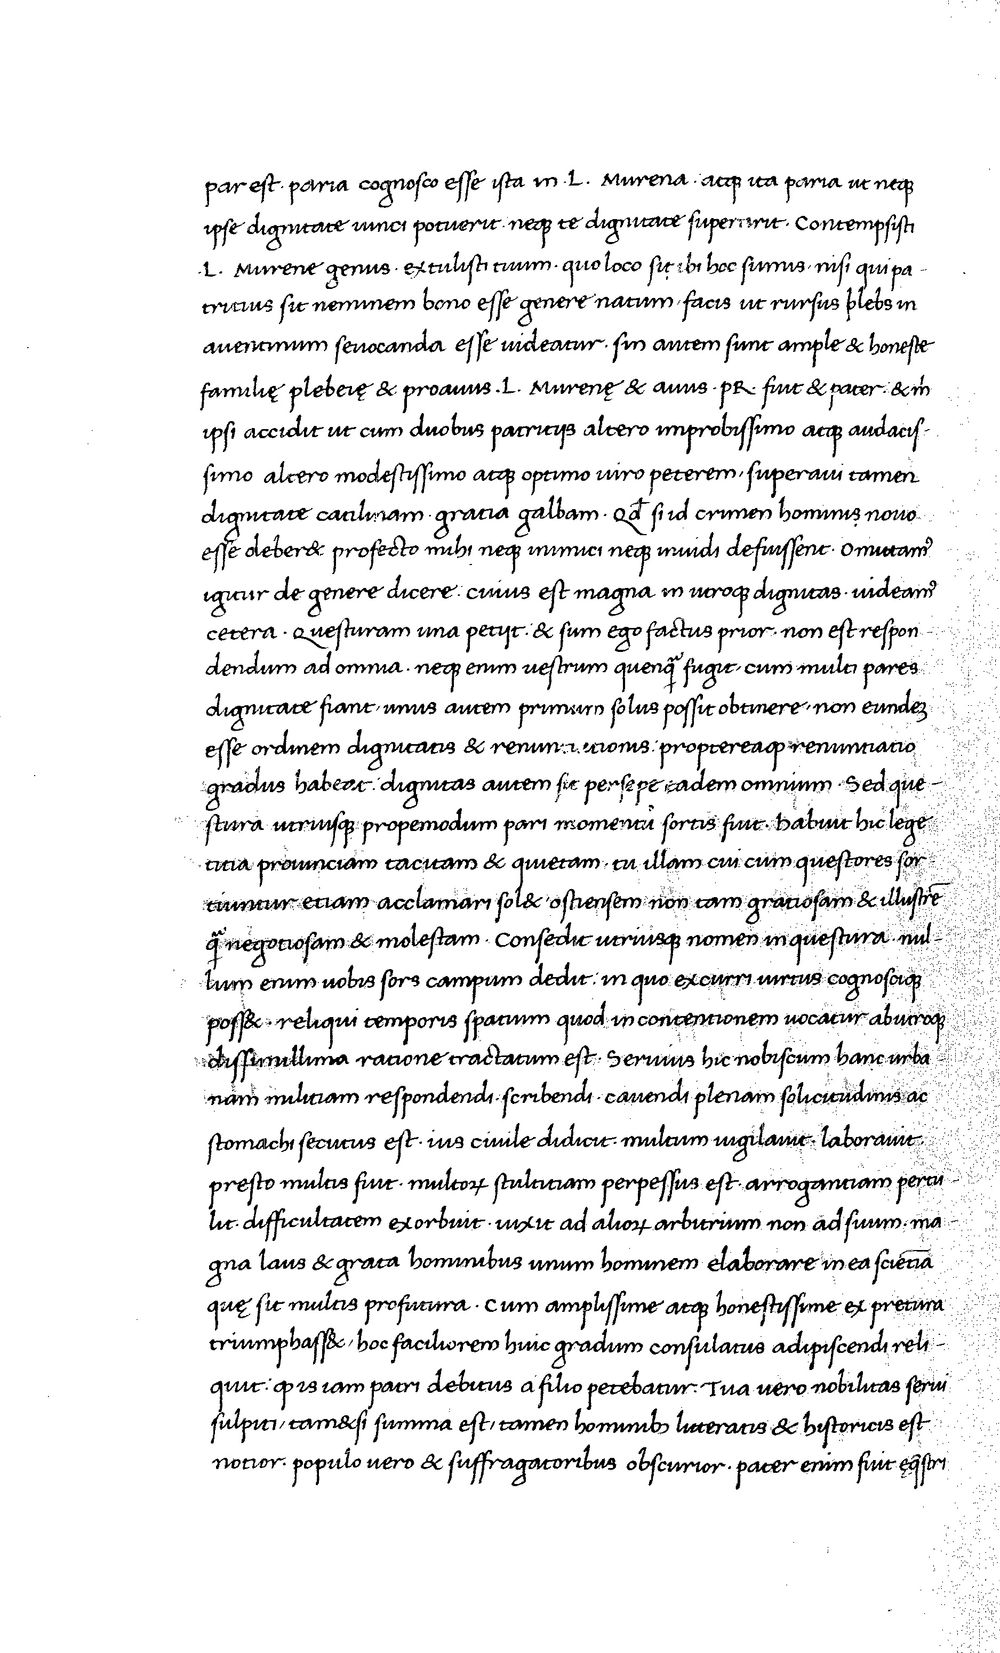 par est · paria cognosco esse ista in · L · Murena · atqꝫ ita paria ut neqꝫ
ipse dignitate uinci potuerit · neqꝫ te dignitate superarit · Contempsisti
· L · Murene genus · extulisti tuum · quo loco si tibi hoc sumis · nisi qui pa-
tricius sit neminem bono esse genere natum · facis ut rursus plebs in
auentinum seuocanda esse uideatur · sin autem sunt ample & honeste
familię plebeię & proauus · L · Murenę & auus · PR · fuit & pater · & m̄
ipsi accidit ut cum duobus patritijs altero improbissimo atqꝫ audacis-
simo altero modestissimo atqꝫ optimo uiro peterem, superaui tamen
dignitate catilinam · gratia galbam · Qd̄ si id crimen hominis nouo
esse deber& profecto mihi neqꝫ inimici neqꝫ inuidi defuissent · Omittam᾽
igitur de genere dicere · cuius est magna in utroqꝫ dignitas · uideam᾽
cetera · Questuram una petijt · & sum ego factus prior · non est respon-
dendum ad omnia · neqꝫ enim uestrum quenq̄ fugit, cum multi pares
dignitate fiant, unus autem primum solus possit obtinere, non eundeꝫ
esse ordinem dignitatis & renuntiationis · propterea qꝫ renuntiatio
gradus habeat · dignitas autem sit persepe eadem omnium · Sed que-
stura utriusqꝫ propemodum pari momentū sortis fuit · habuit hic lege
titia prouinciam tacitam & quietam · tu illam cui cum questores sor-
tiuntur etiam acclamari sol& ostiensem non tam gratiosam & illustrē
q̄ negotiosam & molestam · Consedit utriusqꝫ nomen in questura · nul-
lum enim uobis sors campum dedit · in quo excurri uirtus cognosciqꝫ
poss& · reliqui temporis spatium quod in contentionem uocatur ab utroqꝫ
dissimillima ratione tractatum est · Seruius hic nobiscum hanc urba
nam militiam respondendi · scribendi · cauendi plenam solicitudinis ac
stomachi secutus est · ius ciuile didicit · multum uigilauit · laborauit
presto multis fuit · multoꝝ stultitiam perpessus est · arrogantiam pertu-
lit · difficultatem exorbuit · uixit ad alioꝝ arbitrium non ad suum · ma-
gna laus & grata hominibus unum hominem elaborare in ea sciētia
quę sit multis profutura · Cum amplissime atqꝫ honestissime ex pretura
triumphass& · hoc faciliorem huic gradum consulatus adipiscendi reli-
quit · ꝙ is iam patri debitus a filio petebatur · Tua uero nobilitas serui
sulpiti, tam&si summa est, tamen hominibꝫ litteratis & historicis est
notior · populo uero & suffragatoribus obscurior · pater enim fuit eq̄stri